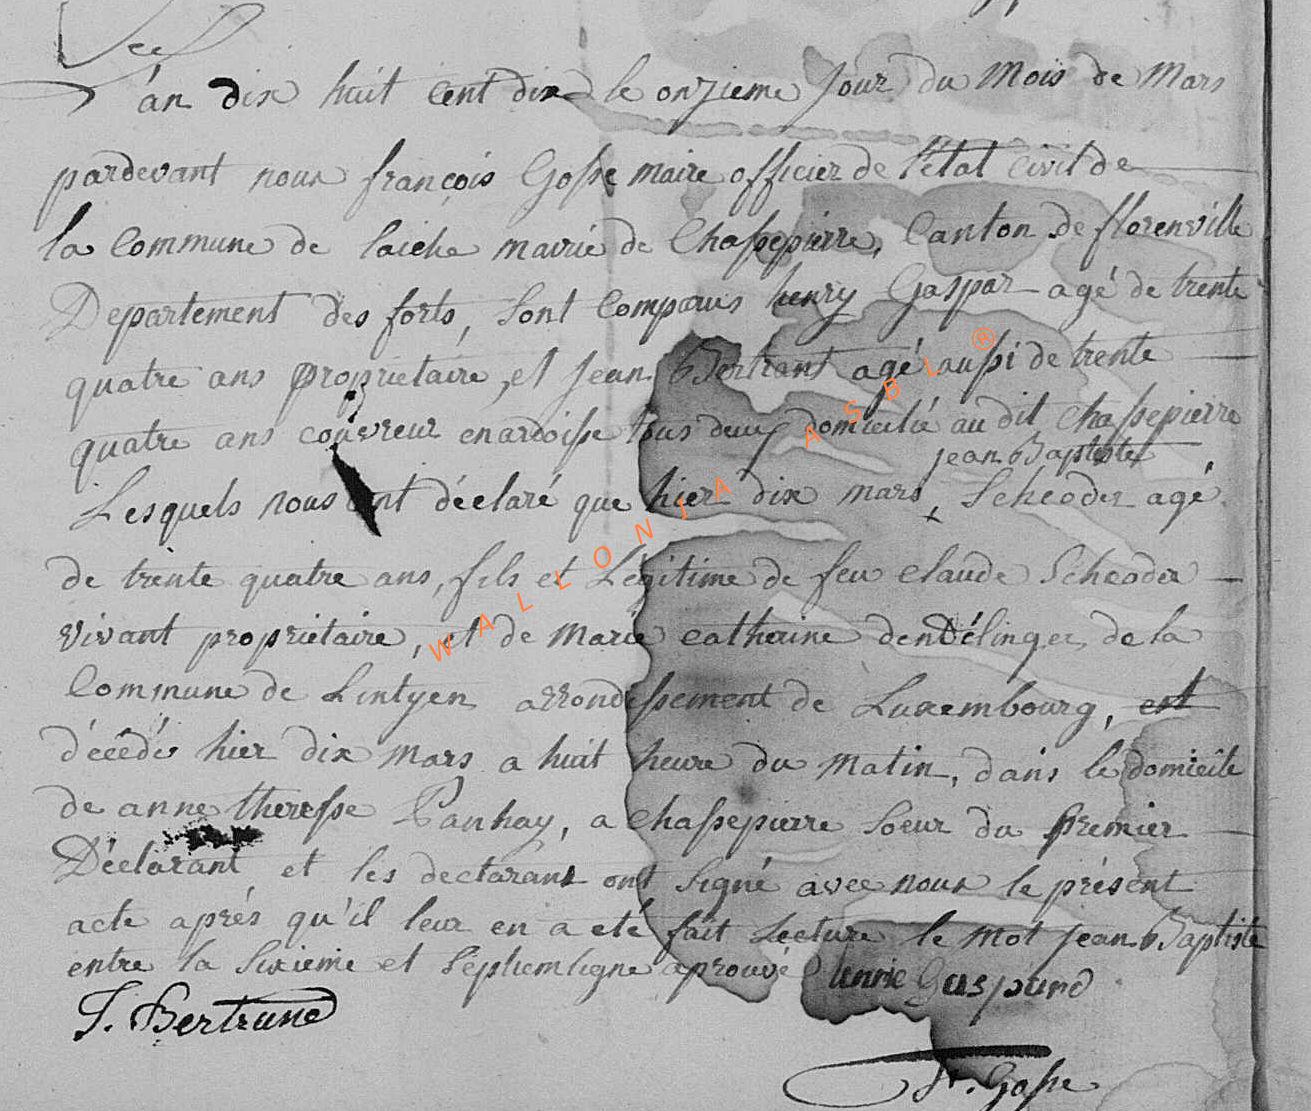 L'an dix huit cent dix le onzieme jour du Mois de Mars
pardevant nous françois Gosse maire officier de l'état Civil de
la Commune de laiche mairie de Chassepierre, Canton de florenville
Departement des forts, Sont Comparus henry Gaspar agé de trente
quatre ans propriétaire, et Jean Bertrant agé aussi de trente
quatre ans couvreur enardoisse tous deux domicilié au dit Chassepierre
jean Baptiste
Lesquels nous ont déclaré que hier dix mars, Scheoder agé
de trente quatre ans, fils et Légitime de feu claude Scheoder
vivant propriétaire, et de Marie catherine denDélinger de la
Commune de Lintyen arrondissement de Luxembourg, est
décédé hier dix mars a huit heure du Matin, dans le domicile
de anne theresse Panhay, a Chassepierre Soeur du premier
Déclarant et les declarans ont Signé avec nous le présent
acte aprés qu'il leur en a eté fait Lecture le Mot jean Baptiste
entre la Sixieme et Septiem ligne aprouvé Henrie Guspard
J. Bertrand
fr. Gosse
WALLONIA ASBL ®